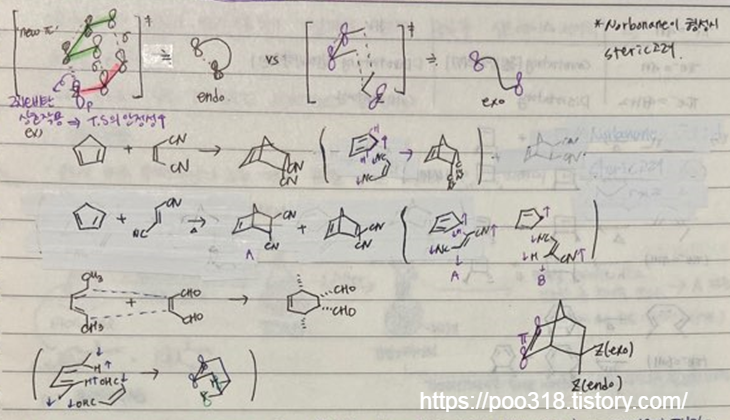 "new π"
≠
≠
* Norbonane이 형성시
steric고려.
endo
vs
exo
p
2차궤도
상호작용 ⇒ T.S의 안정성↑
ex)
CN
CN
CN
CN
H
H
NC
NC
CN
CN
CN
NC
Δ
CN
CN
CN
CN
A
H
NC
CN
A
NC
H
CN
B
CH3
CH3
CHO
CHO
CHO
CHO
H
H
OHC
OHC
H
H
π
Z(exo)
Z(endo)
https://poo318.tistory.com/